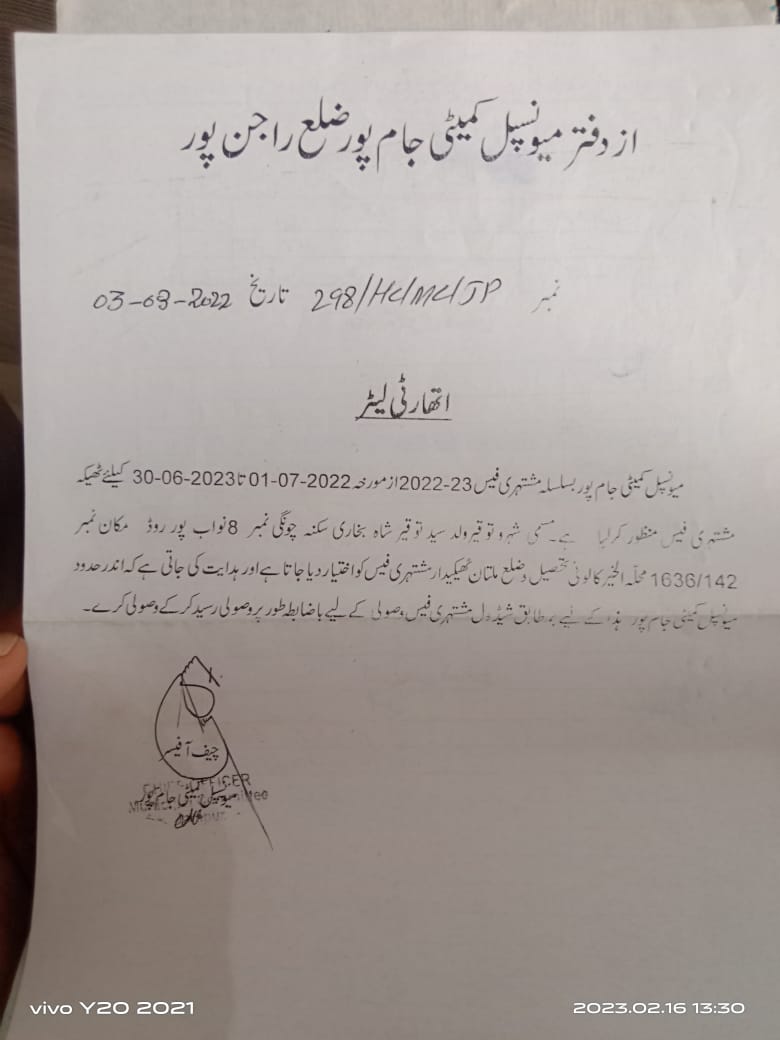 از دفتر میونسپل کمیٹی جام پور ضلع راجن پور
نمبر 298/HC/MC/JP تاریخ 03-08-2022
اتھارٹی لیٹر
میونسپل کمیٹی جام پور بسلسلہ مشتہری فیس 2022-23 از مورخہ 01-07-2022 تا 30-06-2023 کیلئے ٹھیکہ
مشتہری فیس منظور کر لیا ہے۔ مسمی شہرو توقیر ولد سید توقیر شاہ بخاری سکنہ چونگی نمبر 8 نواب پور روڈ مکان نمبر
1636/142 محلہ الخیر کالونی تحصیل و ضلع ملتان ٹھیکیدار مشتہری فیس کو اختیار دیا جاتا ہے اور ہدایت کی جاتی ہے کہ اندر حدود
میونسپل کمیٹی جام پور ہذا کے لیے بمطابق شیڈول مشتہری فیس وصولی کے لیے باضابطہ طور پر وصولی رسید کر کے وصولی کرے۔
چیف آفیسر
CHIEF OFFICER
میونسپل کمیٹی جام پور
Municipal Committee
vivo Y20 2021
2023.02.16 13:30